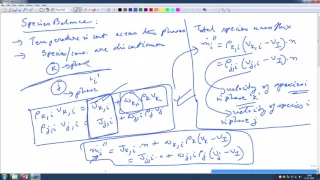 Species Balance :
→ Temperature is cont across the phases
→ Species/conc. are discontinuous
k phase
j phase
ρk,i vk,i = Jk,i + ωk,i ρk vk
ρj,i vj,i = Jj,i + ωj,i ρj vj
Total species mass flux
ṁi'' = ρk,i (vk,i − vI).n
= ρj,i (vj,i − vI).n
velocity of species i
in phase k
velocity of species i
in phase j
ṁi'' = Jk,i . n + ωk,i ρk (vk − vI)
= Jj,i . n + ωj,i ρj (vj − vI)